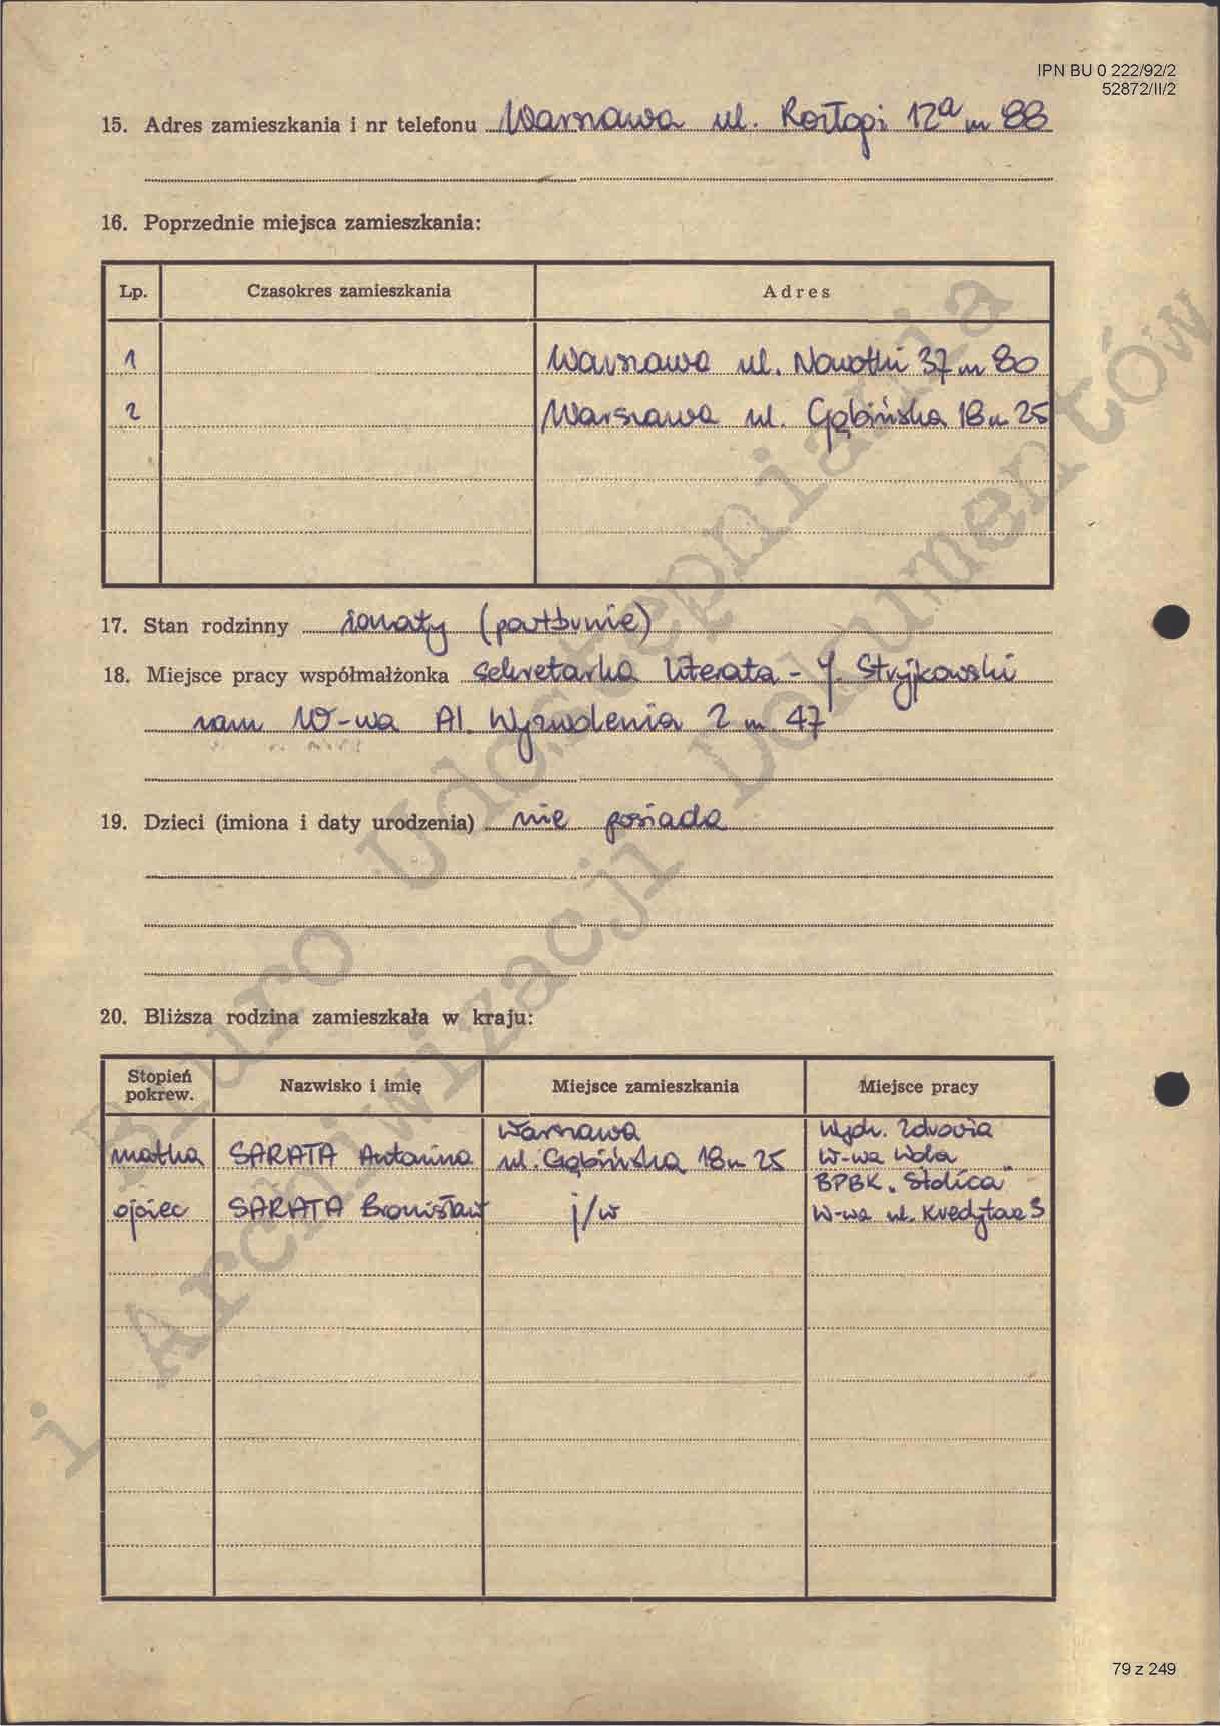 IPN BU 0 222/92/2
52872/II/2
15. Adres zamieszkania i nr telefonu Warszawa ul. Rozłogi 12a m 88
16. Poprzednie miejsca zamieszkania:
Lp. Czasokres zamieszkania Adres
1 Warszawa ul. Nowotki 37 m 80
2 Warszawa ul. Gąbińska 18 m 25
17. Stan rodzinny żonaty (powtórnie)
18. Miejsce pracy współmałżonka sekretarka literata - J. Stryjkowski
zam W-wa Al. Wyzwolenia 2 m. 47
19. Dzieci (imiona i daty urodzenia) nie posiada
20. Bliższa rodzina zamieszkała w kraju:
Stopień pokrew. Nazwisko i imię Miejsce zamieszkania Miejsce pracy
matka SARATA Antonina Warszawa ul. Gąbińska 18 m 25 Wydz. Zdrowia W-wa Wola
ojciec SARATA Bronisław j/w BPBK "Stolica" W-wa ul. Kredytowa 3
Biuro Udostępniania
i Archiwizacji Dokumentów
79 z 249